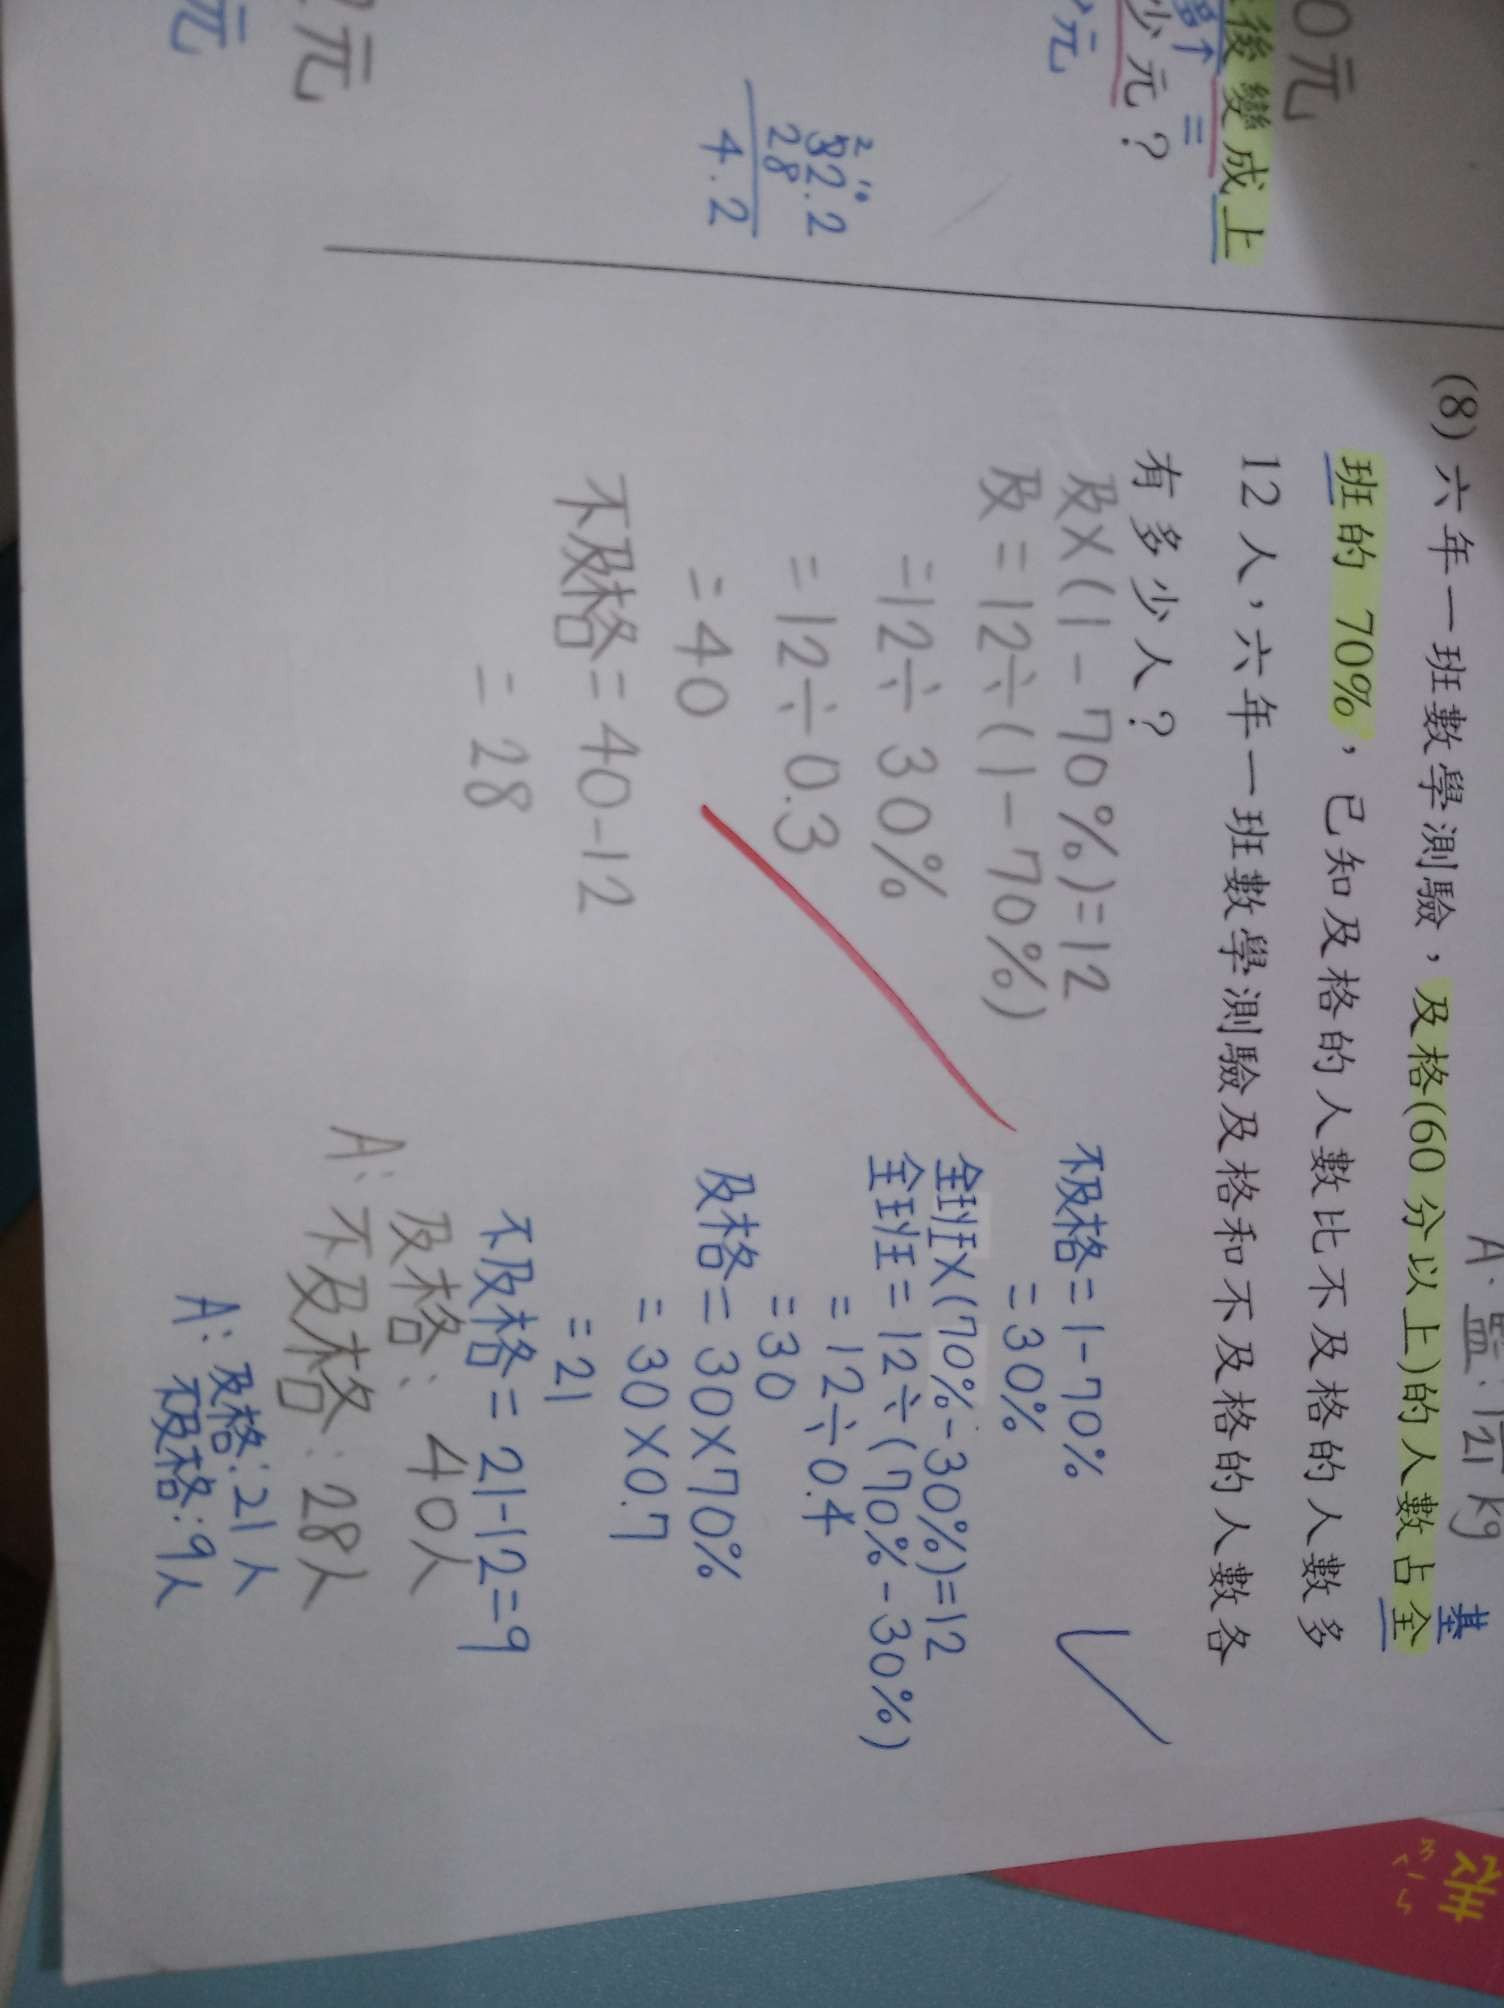 0元
後變成上
多↑ =
少元？
元
32.2
28
4.2
2元
元
A:藍:
kg
基
(8) 六年一班數學測驗，及格(60 分以上)的人數占全
班的 70%，已知及格的人數比不及格的人數多
12 人，六年一班數學測驗及格和不及格的人數各
有多少人？
及×(1-70%)=12
及=12÷(1-70%)
=12÷30%
=12÷0.3
=40
不及格=40-12
=28
不及格=1-70%
=30%
全班×(70%-30%)=12
全班=12÷(70%-30%)
=12÷0.4
=30
及格=30×70%
=30×0.7
=21
不及格=21-12=9
及格:40人
A:不及格:28人
A:及格:21人
不及格:9人